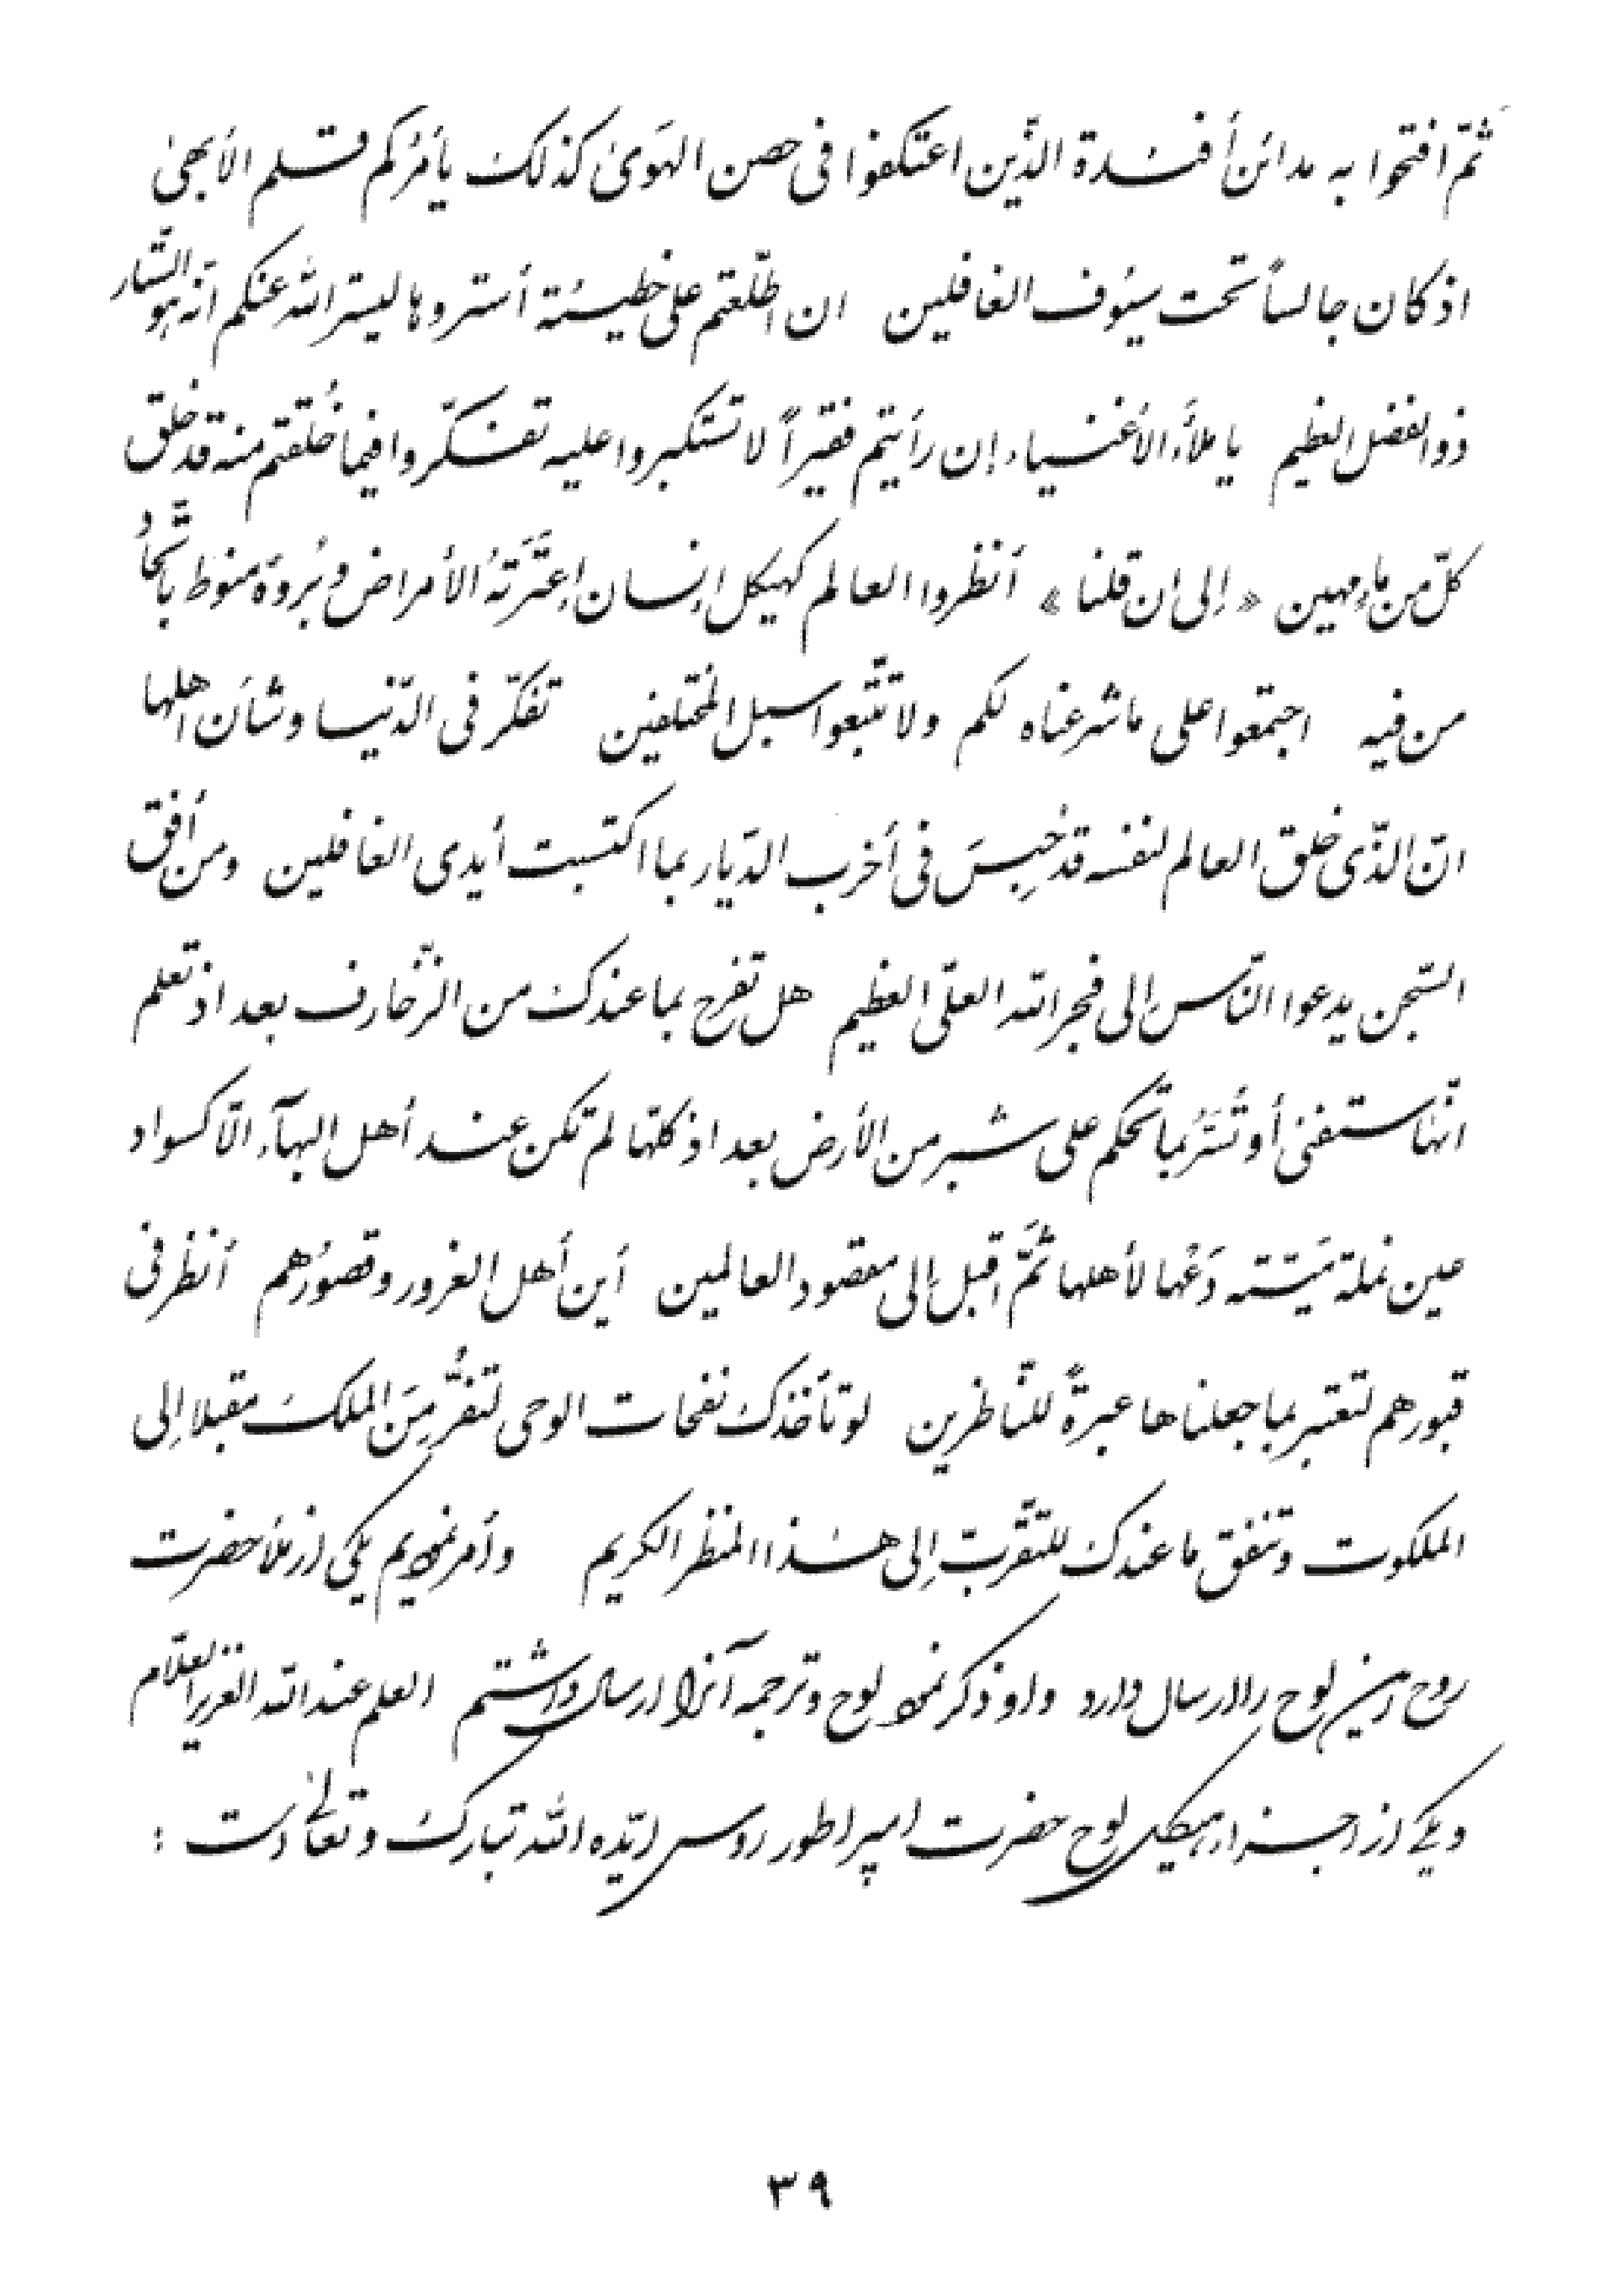 ثمّ افتحوا به مدائن أفئدة الّذین اعتکفوا فی حصن الهَویٰ کذلک یأمُرُکم قلم الأبهیٰ
اذ کان جالساً تحت سیُوف الغافلین ان اطّلعتم علی خطیئة أستروها لیستر الله عنکم انّه هو السّتّار
ذو الفضل العظیم یا ملأء الأغنیاء إن رأیتم فقیراً لا تستکبروا علیه تفکّروا فیما خُلقتم منه قد خلق
کلّ من ماءٍ مهین « إلی ان قلنا » أنظروا العالم کهیکل إنسان إعتَرَتهُ الأمراض و بُروءهُ منوط باتّحاد
من فیه اجتمعوا علی ما شرعناه لکم ولا تتّبعوا سبل المختلفین تفکّر فی الدّنیا و شأن اهلها
انّ الّذی خلق العالم لنفسه قد حُبِسَ فی أخرب الدّیار بما اکتسبت أیدی الغافلین ومن أفق
السّجن یدعوا النّاس إلی فجر الله العلیّ العظیم هل تفرح بما عندک من الزّخارف بعد اذ تعلم
انّها ستفنیٰ أو تُسَرُّ بما تحکم علی شبر من الأرض بعد اذ کلّها لم تکن عند أهل البهآء الّا کسواد
عین نملة میّتة دَعْها لأهلها ثُمَّ اقبل إلی مقصود العالمین أین أهل الغرور و قصورُهم أنظر فی
قبورهم لتعتبر بما جعلناها عبرةً للنّاظرین لو تأخذک نفحات الوحی لتفرُّ مِنَ الملک مقبلا إلی
الملکوت و تنفق ما عندک للتقرّب إلی هٰذا المنظر الکریم و أمر نمودیم یکی از ملأ حضرت
روح این لوح را ارسال دارد و او ذکر نمود لوح و ترجمه آنرا ارسال داشتم العلم عند الله العزیز العلّام
و یکی از اجزاء هیکل لوح حضرت امپراطور روس ایّده الله تبارک و تعالیٰ است :
۳۹